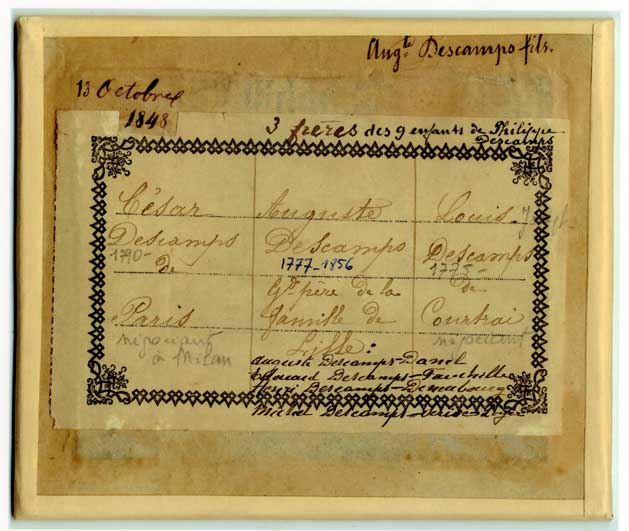 Augte Descamps fils.
13 Octobre
1848
3 frères des 9 enfants de Philippe
Descamps
César Auguste Louis
Descamps Descamps Descamps
1790- 1777-1856 1775-
de de
Gd père de la
Paris famille de Courtrai
négociant négociant
à Milan Lille:
Auguste Descamps-Danel
Edouard Descamps-Fauchille
Henri Descamps-
Descamps-